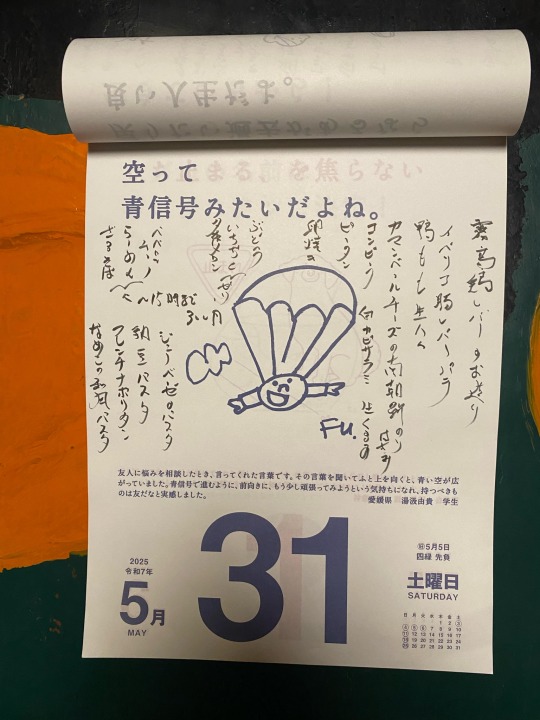 空って
青信号みたいだよね。
レバーのお造り
イベリコ豚レバー
鴨もも生ハム
カマンベールチーズの
コンビーフ 白カビサラミ 生くるみ
ピータン
卵焼き
ぶどう
らーめん
ざるそば
〜15時まで
パスタ
納豆パスタ
ナポリタン
なめこの和風パスタ
FU.
友人に悩みを相談したとき、言ってくれた言葉です。その言葉を聞いてふと上を向くと、青い空が広
がっていました。青信号で進むように、前向きに、もう少し頑張ってみようという気持ちになれ、持つべきも
のは友だなと実感しました。
愛媛県 湯汲由貴 学生
2025
令和7年
5月
MAY
31
㊐5月5日
四緑 先負
土曜日
SATURDAY
日 月 火 水 木 金 土
1 2 3
4 5 6 7 8 9 10
11 12 13 14 15 16 17
18 19 20 21 22 23 24
25 26 27 28 29 30 31